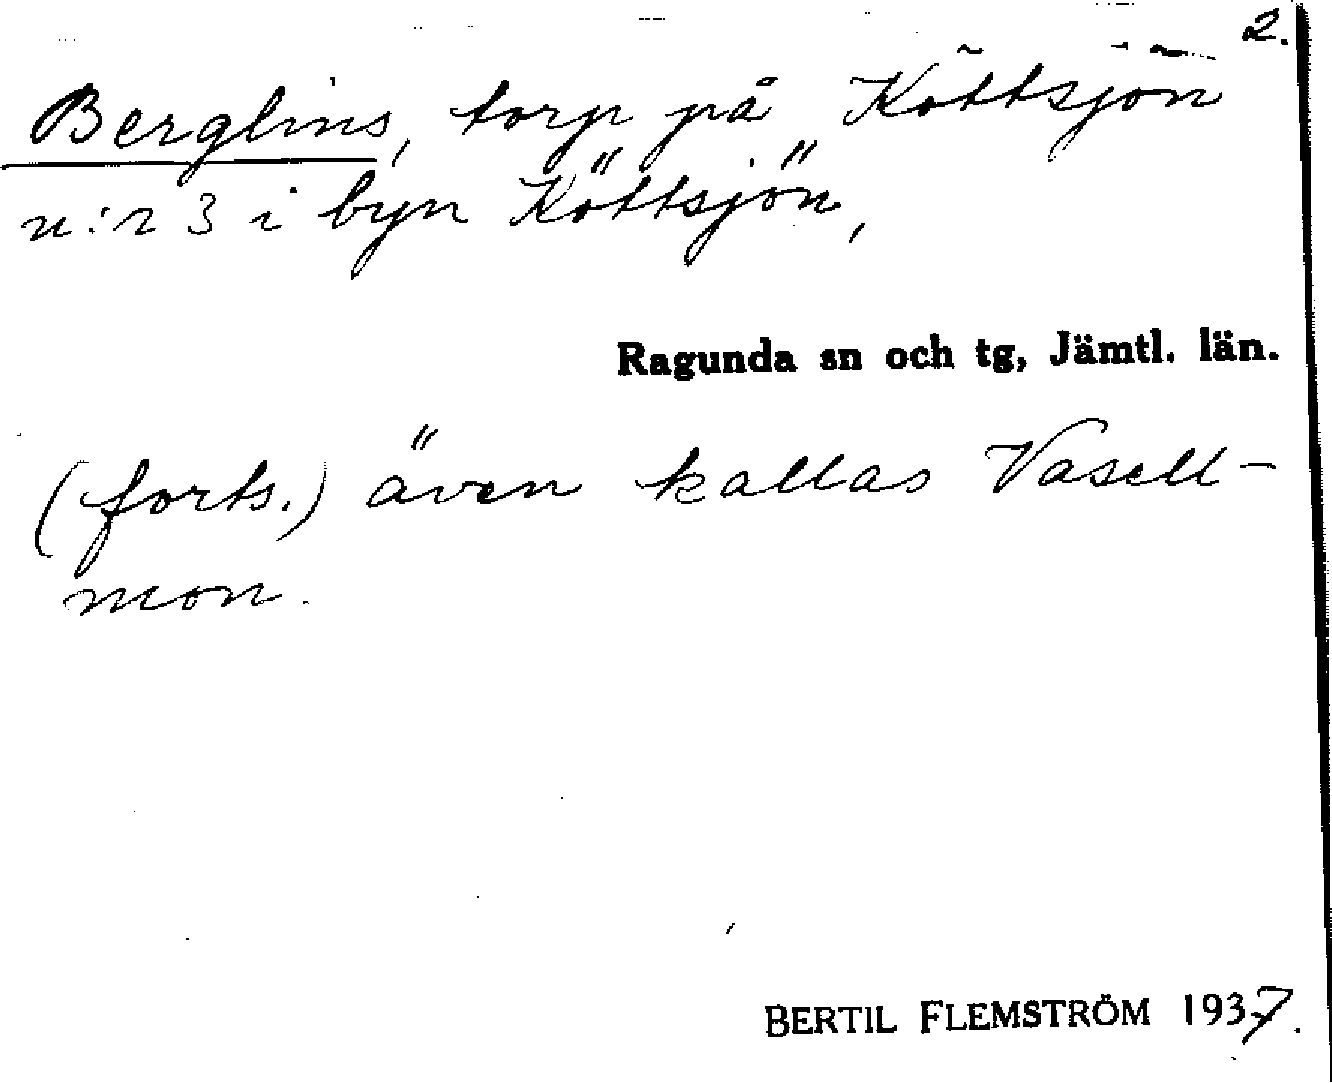 2.
Berglins, torp på Köttsjön
n:r 3 i byn Köttsjön,
Ragunda sn och tg, Jämtl. län.
(forts.) även kallas Vasell-
mon.
BERTIL FLEMSTRÖM 1937.